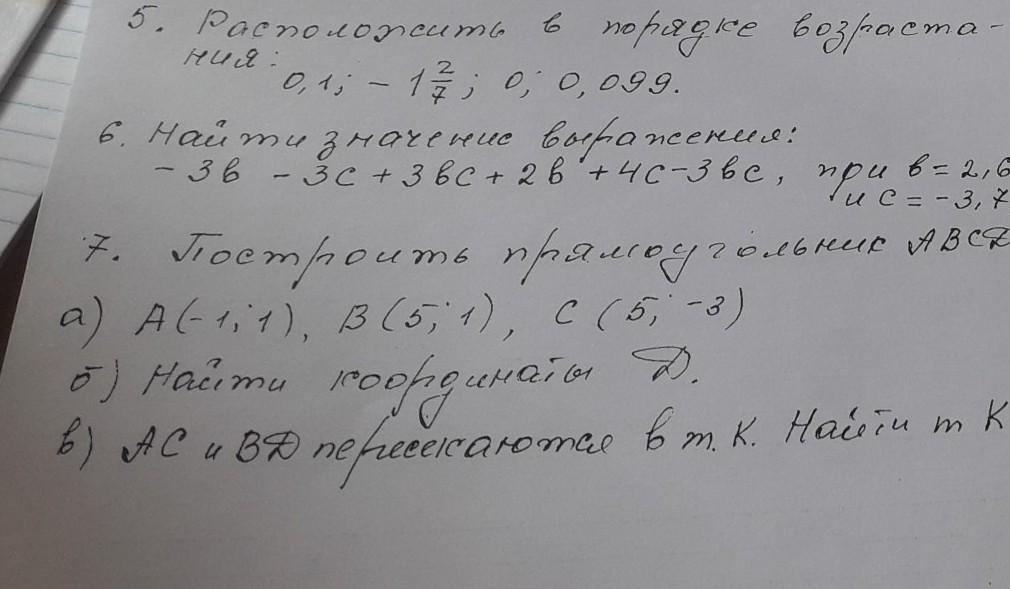 5. Расположить в порядке возраста-
ния:
0,1; - 1 2/7; 0; 0,099.
6. Найти значение выражения:
- 3в - 3с + 3вс + 2в + 4с - 3вс, при в = 2,6
и с = -3,7
7. Построить прямоугольник АВСД
а) А(-1; 1), В(5; 1), С(5; -3)
б) Найти координаты Д.
в) АС и ВД пересекаются в т. К. Найти т К